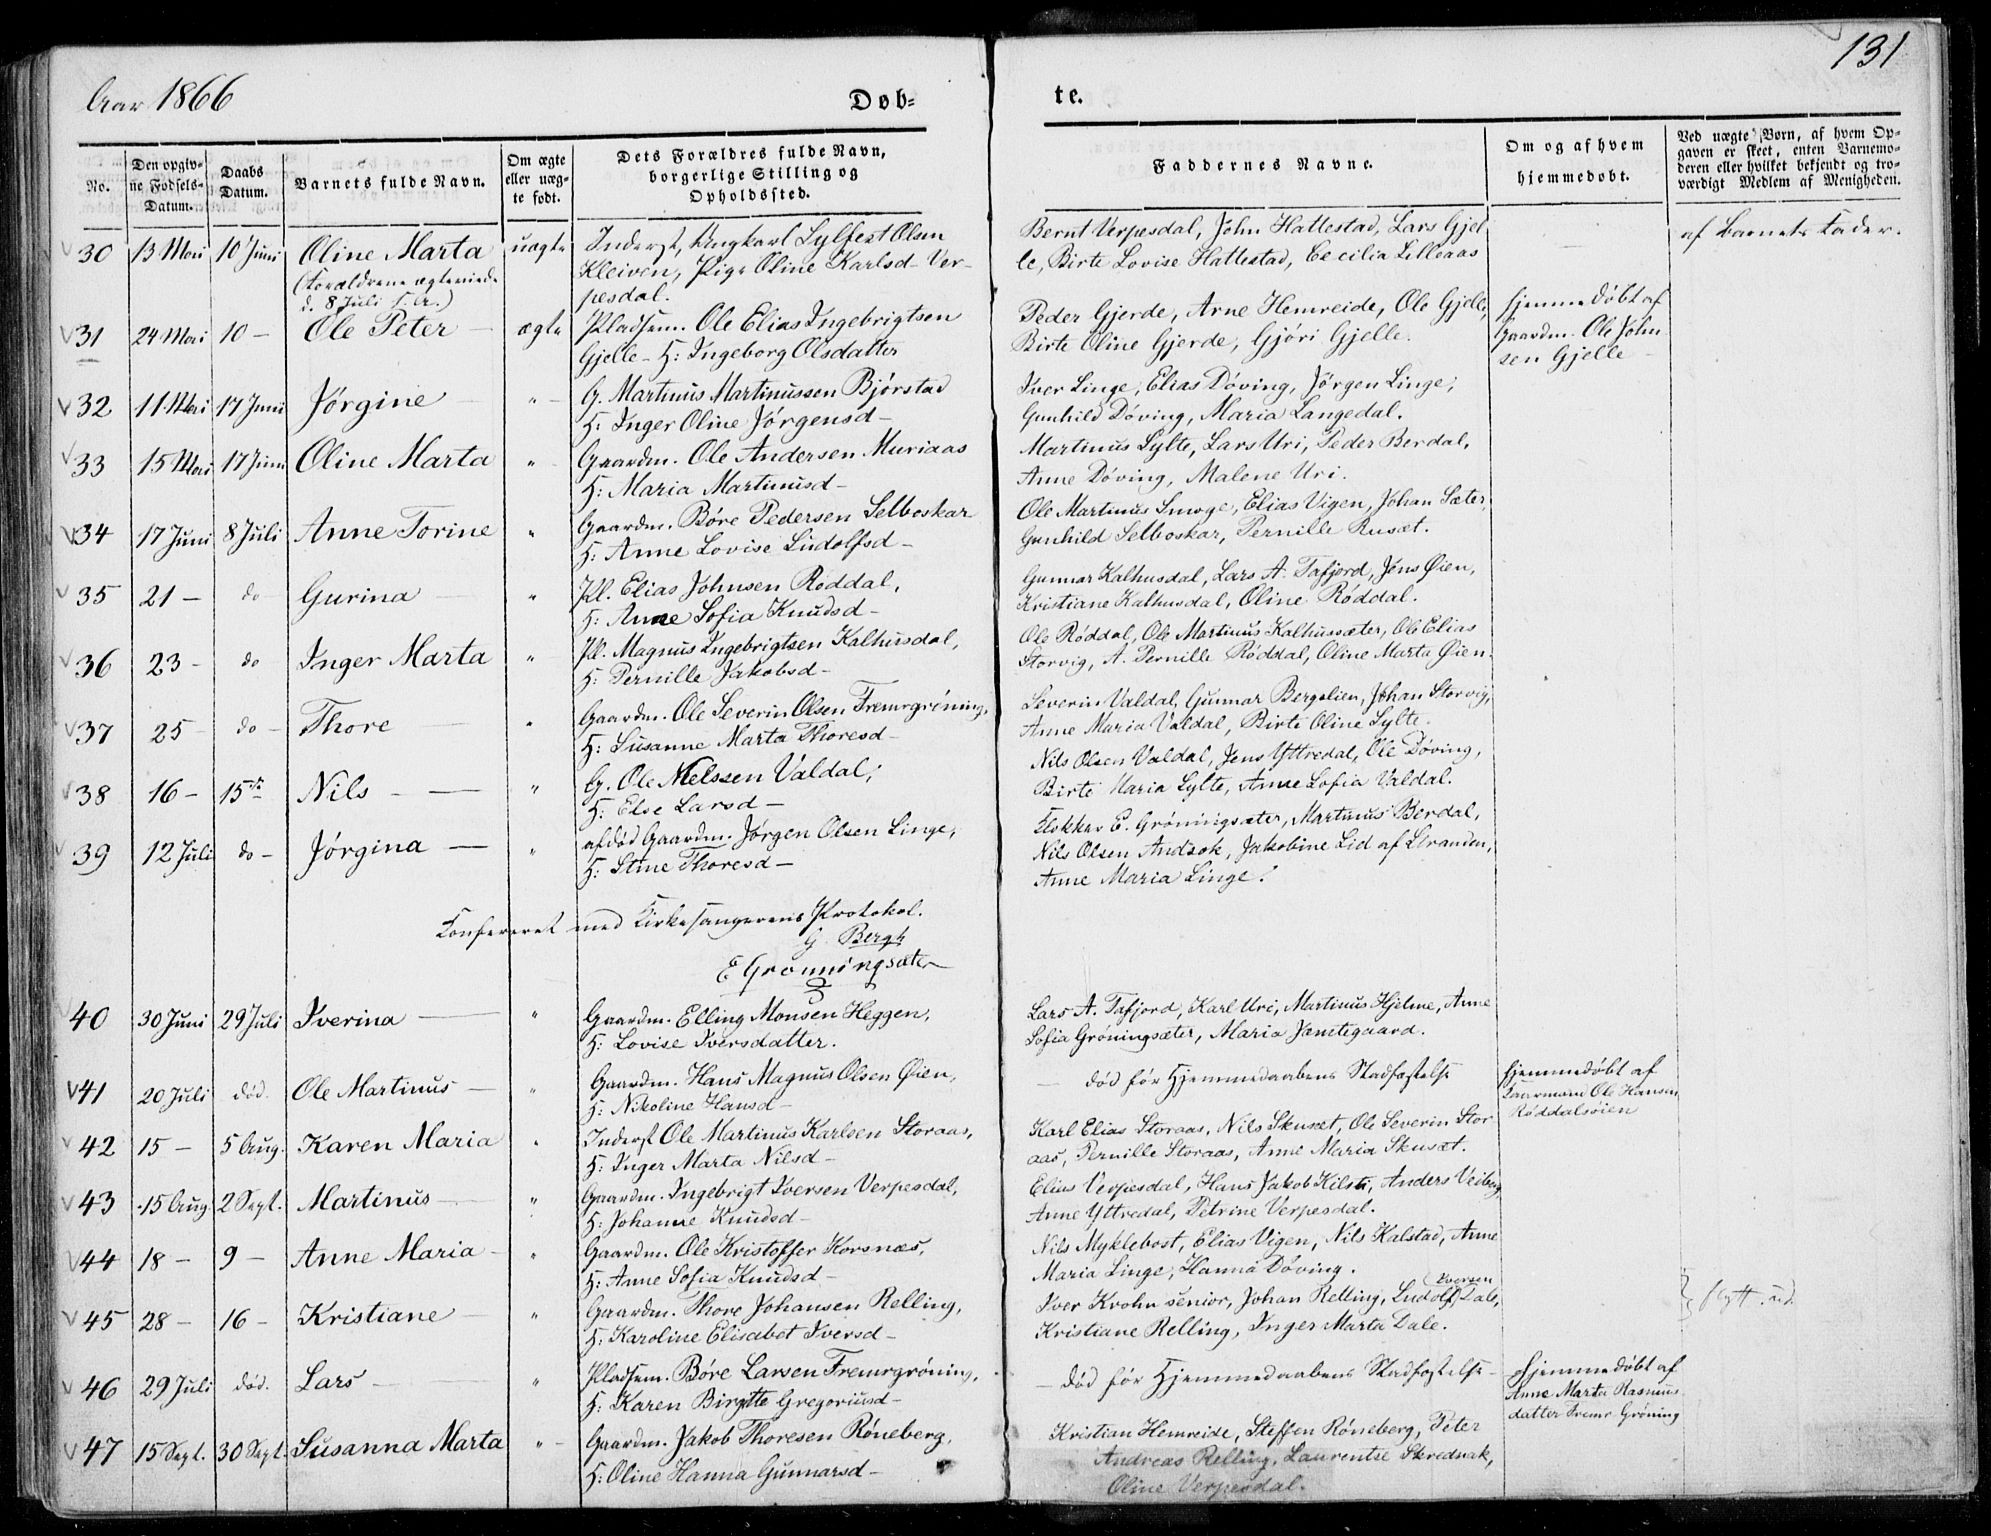 Aar 1866
Døb=
te.
131
No.
Den opgiv-
ne Fødsels-
Datum.
Daabs
Datum.
Barnets fulde Navn.
Om ægte
eller uæg-
te født.
Dets Forældres fulde Navn,
borgerlige Stilling og
Opholdssted.
Faddernes Navne.
Om og af hvem
hjemmedøbt.
Ved uægte Børn, af hvem Op-
gaven er skeet, enten Barnemo-
deren eller hvilket bekjendt og tro-
værdigt Medlem af Menigheden.
30 13 Mai 10 Juni Oline Marta uægte Inderst, Ungkarl Sylfest Olsen
Kleiven, Pige Oline Karlsd- Ver-
pesdal.
(Forældrene ægteviede
d. 8 Juli s. A.)
Bernt Verpesdal, John Hattestad, Lars Gjel
le, Birte Lovise Hattestad, Cecilia Lilleaas
af Barnets Fader.
31 24 Mai 10 – Ole Peter – ægte Pladsm. Ole Elias Ingebrigtsen
Gjelle – H: Ingeborg Olsdatter
Peder Gjerde, Arne Hemreide, Ole Gjelle,
Birte Oline Gjerde, Gjøri Gjelle.
Hjemmedøbt af
Gaardm. Ole John
sen Gjelle –
32 11 Mai 17 Juni Jørgine – " – G. Martinus Martinussen Bjørstad
H: Inger Oline Jørgensd –
Iver Linge, Elias Døving, Jørgen Linge,
Gunhild Døving, Maria Langedal.
33 15 Mai 17 Juni Oline Marta " – Gaardm. Ole Andersen Muriaas
H: Maria Martinusd –
Martinus Sylte, Lars Uri, Peder Berdal,
Anne Døving, Malene Uri.
34 17 Juni 8 Juli Anne Torine " Gaardm. Børe Pedersen Selboskar
H: Anne Lovise Ludolfsd –
Ole Martinus Smoge, Elias Vigen, Johan Sæter,
Gunhild Selboskar, Pernille Rusæt.
35 21 – do Gurina – " Pl. Elias Johnsen Røddal,
H: Anne Sofia Knudsd –
Gunnar Kalhusdal, Lars A. Tafjord, Jens Øien,
Kristiane Kalhusdal, Oline Røddal.
36 23 – do Inger Marta " – Pl. Magnus Ingebrigtsen Kalhusdal,
H: Pernille Jakobsd –
Ole Røddal, Ole Martinus Kalhussæter, Ole Elias
Storvig, A. Pernille Røddal, Oline Marta Øien.
37 25 – do – Thore – " Gaardm. Ole Severin Olsen Fremrgrøning,
H: Susanne Marta Thoresd –
Severin Valdal, Gunnar Bergslien, Johan Storvig,
Anne Maria Valdal, Birte Oline Sylte.
38 16 – 15de – Nils – – " G. Ole Nielssen Valdal,
H: Else Larsd –
Nils Olsen Valdal, Jens Yttredal, Ole Døving,
Birte Maria Sylte, Anne Sofia Valdal.
39 12 Juli do – Jørgina – " afdød Gaardm. Jørgen Olsen Linge,
H: Stine Thoresd –
Klokker E. Grøningsæter, Martinus Berdal,
Nils Olsen Andsok, Jakobine Lid af Stranden,
Anne Maria Linge.
Konfereret med Kirkesangerens Protokol.
G. Bergh
E Grønningsæter
40 30 Juni 29 Juli Iverina – " Gaardm. Elling Monsen Heggen,
H: Lovise Iversdatter.
Lars A. Tafjord, Karl Uri, Martinus Hjelme, Anne
Sofia Grøningsæter, Maria Jemtegaard.
41 20 Juli død. Ole Martinus – " Gaardm. Hans Magnus Olsen Øien,
H: Nikoline Hansd –
– død før Hjemmedaabens Stadfæstelse
Hjemmedøbt af
Gaarmand Ole Hansen
Røddalsøien
42 15 – 5 Aug. Karen Maria " Inderst Ole Martinus Karlsen Storaas,
H: Inger Marta Nilsd –
Karl Elias Storaas, Nils Skusæt, Ole Severin Stor
aas, Pernille Storaas, Anne Maria Skusæt.
43 15 Aug. 2 Sept. Martinus – " Gaardm. Ingebrigt Iversen Verpesdal,
H: Johanne Knudsd –
Elias Verpesdal, Hans Jakob Kilsti, Anders Veiberg,
Anne Yttredal, Petrine Verpesdal.
44 18 – 9 – Anne Maria – " Gaardm. Ole Kristoffer Korsnæs,
H: Anne Sofia Knudsd –
Nils Myklebost, Elias Vigen, Nils Kalstad, Anne
Maria Linge, Hanna Døving.
45 28 – 16 – Kristiane – " Gaardm. Thore Johansen Relling,
H: Karoline Elisabet Iversd –
Iversen
Iver Krohn senior, Johan Relling, Ludolf Dale,
Kristiane Relling, Inger Marta Dale.
flytt. ud.
46 29 Juli død. Lars – " Pladsm. Børe Larsen Fremrgrøning,
H: Karen Birgitte Gregoriusd –
– død før Hjemmedaabens Stadfæstelse –
Hjemmedøbt af
Anne Marta Rasmus
datter Fremr Grøning
47 15 Sept. 30 Sept. Susanna Marta " – Gaardm. Jakob Thoresen Røneberg,
H: Oline Hanna Gunnarsd –
Kristian Hemreide, Steffen Røneberg, Peter
Andreas Relling, Laurentse Skrednak,
Oline Verpesdal.